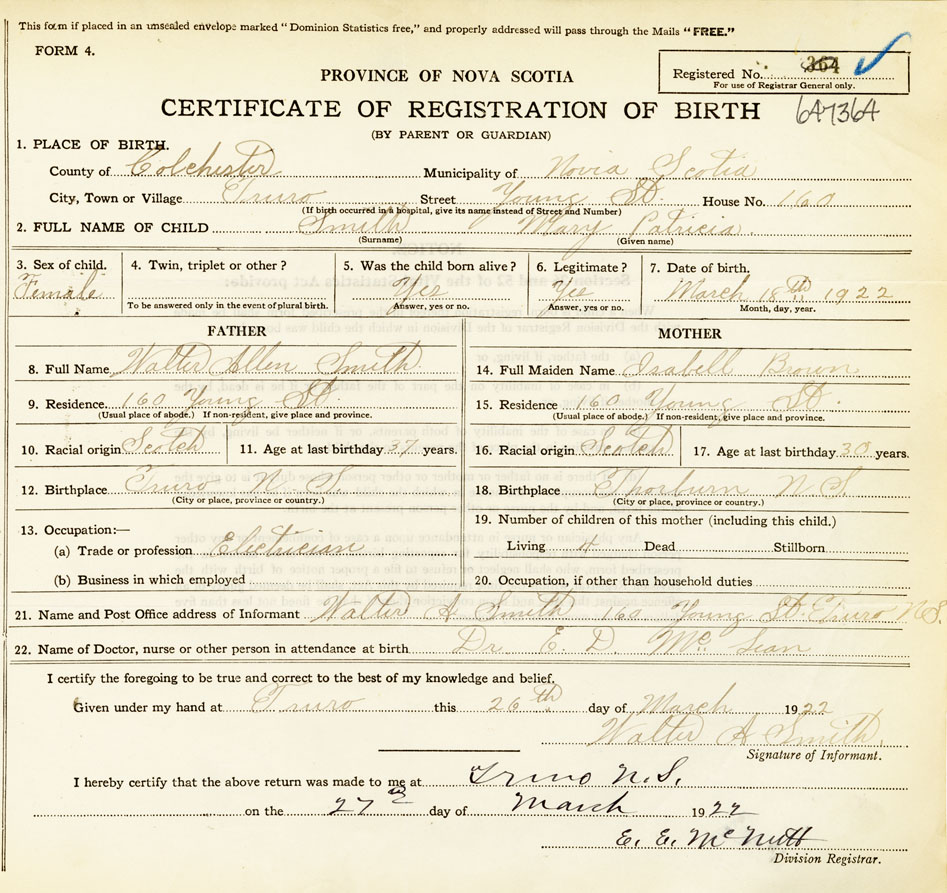 This form if placed in an unsealed envelope marked "Dominion Statistics free," and properly addressed will pass through the Mails "FREE."
FORM 4.
Registered No. 364
For use of Registrar General only.
PROVINCE OF NOVA SCOTIA
CERTIFICATE OF REGISTRATION OF BIRTH
647364
(BY PARENT OR GUARDIAN)
1. PLACE OF BIRTH.
County of Colchester Municipality of Novia Scotia
City, Town or Village Truro Street Young St. House No. 160
(If birth occurred in a hospital, give its name instead of Street and Number)
2. FULL NAME OF CHILD Smith Mary Patricia
(Surname) (Given name)
3. Sex of child. 4. Twin, triplet or other? 5. Was the child born alive? 6. Legitimate? 7. Date of birth.
Female Yes Yes March 18th 1922
To be answered only in the event of plural birth. Answer, yes or no. Answer, yes or no. Month, day, year.
FATHER
8. Full Name Walter Allen Smith
9. Residence 160 Young St.
(Usual place of abode.) If non-resident, give place and province.
10. Racial origin Scotch 11. Age at last birthday 37 years.
12. Birthplace Truro N. S.
(City or place, province or country.)
13. Occupation:—
(a) Trade or profession Electrician
(b) Business in which employed
MOTHER
14. Full Maiden Name Isabell Brown
15. Residence 160 Young St.
(Usual place of abode.) If non-resident, give place and province.
16. Racial origin Scotch 17. Age at last birthday 30 years.
18. Birthplace Thorburn N S.
(City or place, province or country.)
19. Number of children of this mother (including this child.)
Living 4 Dead Stillborn
20. Occupation, if other than household duties
21. Name and Post Office address of Informant Walter A Smith 160 Young St Truro N.S.
22. Name of Doctor, nurse or other person in attendance at birth Dr. E. D. Mc Lean
I certify the foregoing to be true and correct to the best of my knowledge and belief.
Given under my hand at Truro this 26th day of March 1922
Walter A Smith.
Signature of Informant.
I hereby certify that the above return was made to me at Truro N.S.
on the 27th day of March 1922
E. E. McNutt
Division Registrar.